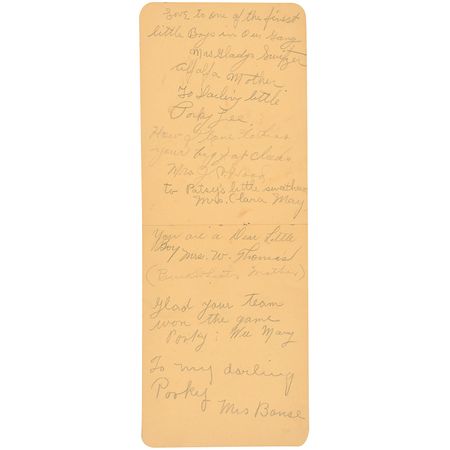 Love to one of the finest
little Boys in Our Gang
Mrs Gladys Switzer
Alfalfa Mother
To Darling little
Porky Lee.
How I love
your big fat
Mrs J
to Patsy's little sweetheart
Mrs. Clara May
You are a Dear Little
Boy Mrs. W. Thomas
(Buckwheats Mother)
Glad your team
won the game
Porky; Wee Mary
To my darling
Porky
Mrs Bonse